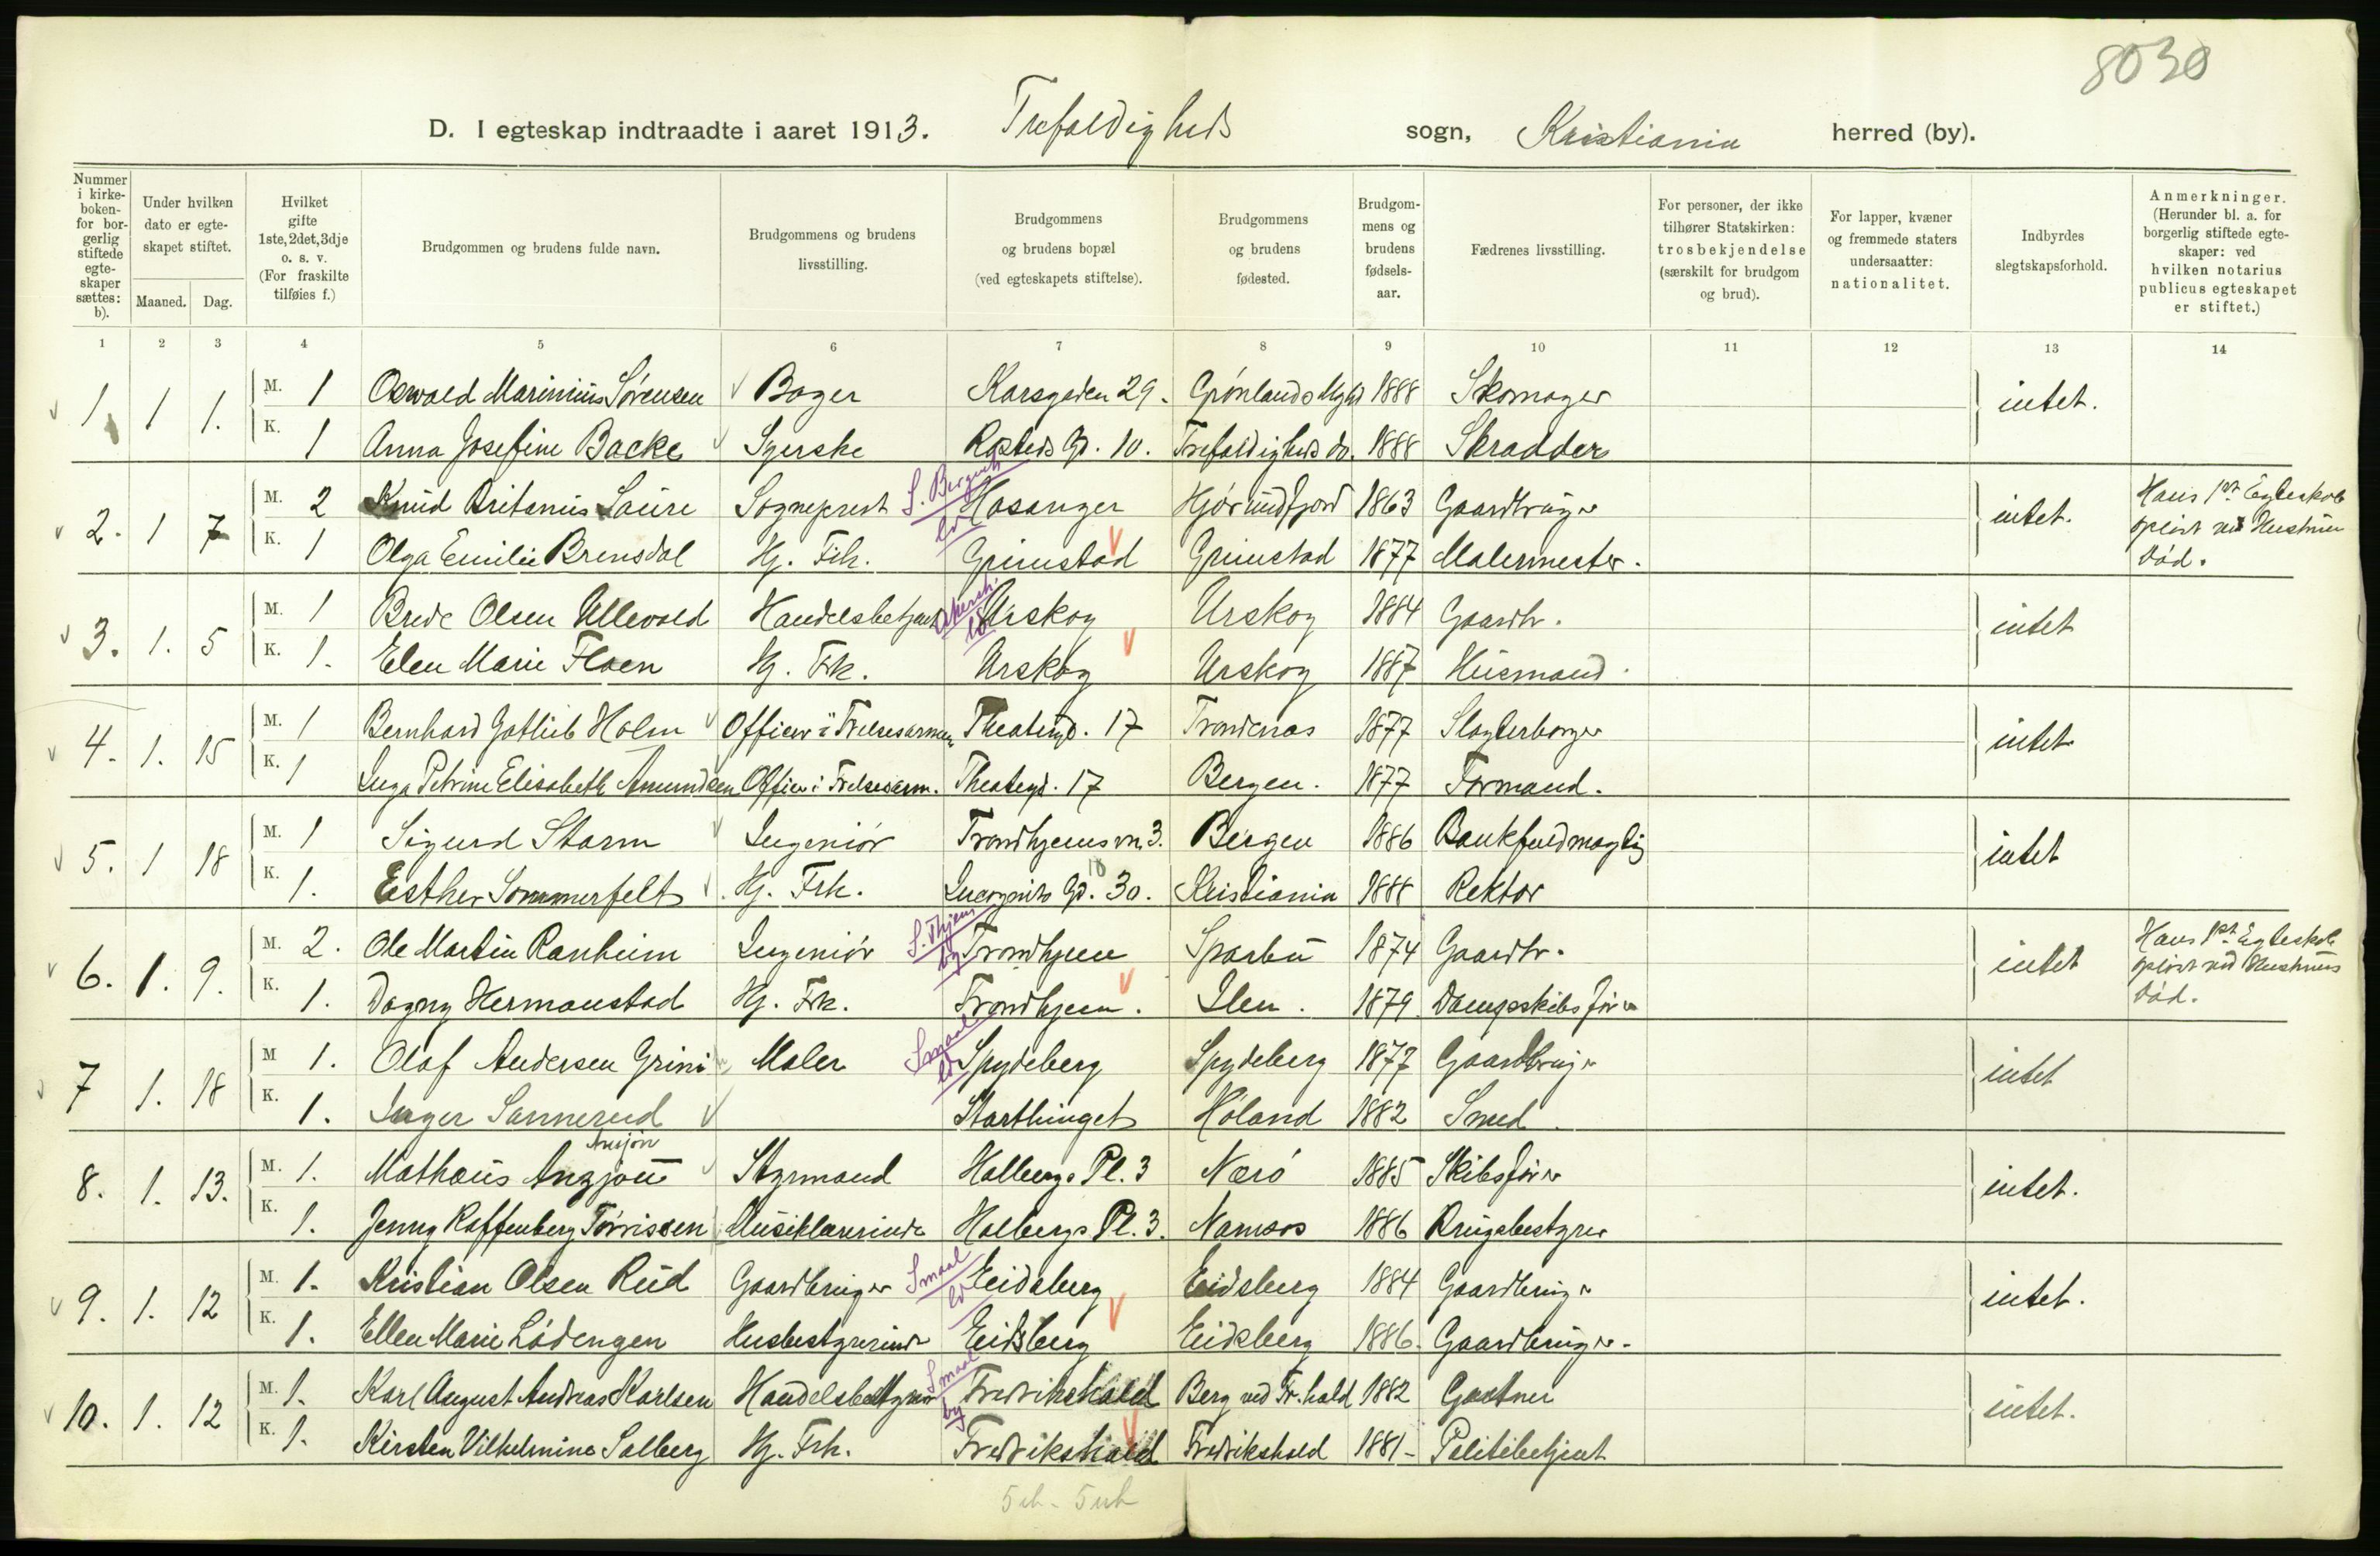 8030
D. I egteskap indtraadte i aaret 1913. Trefoldigheds sogn, Kristiania herred (by).
Nummer i kirke-boken- for bor-gerlig stiftede egte-skaper sættes: b).
Under hvilken dato er egte-skapet stiftet.
Maaned. Dag.
Hvilket gifte 1ste, 2det, 3dje o. s. v. (For fraskilte tilføies f.)
Brudgommen og brudens fulde navn.
Brudgommens og brudens livsstilling.
Brudgommens og brudens bopæl (ved egteskapets stiftelse).
Brudgommens og brudens fødested.
Brudgom-mens og brudens fødsels-aar.
Fædrenes livsstilling.
For personer, der ikke tilhører Statskirken: trosbekjendelse (særskilt for brudgom og brud).
For lapper, kvæner og fremmede staters undersaatter: nationalitet.
Indbyrdes slegtskapsforhold.
Anmerkninger. (Herunder bl. a. for borgerlig stiftede egte-skaper: ved hvilken notarius publicus egteskapet er stiftet.)
1 2 3 4 5 6 7 8 9 10 11 12 13 14
1 1 1. M. 1 Oswald Marinius Sørensen Bager Karsgaden 29. Grønlands Mgh 1888 Skomager intet.
K. 1 Anna Josefine Backe Syerske Rosteds Gd. 10. Trefoldigheds do. 1888 Skrædder
2. 1 7 M. 2 Knud Britanus Saure Sogneprest S. Bergenh ld Hosanger Hjørundfjord 1863 Gaardbruger intet. Hans 1st Egteskab opløst ved Hustrus død.
K. 1 Olga Emilie Brensdal Hj. Frk. Grimstad Grimstad 1877 Malermester.
3. 1. 5 M. 1 Brede Olsen Ullevold Handelsbetjent Akersh ld Urskog Urskog 1884 Gaardbr. intet
K. 1. Elen Marie Floen Hj. Frk. Urskog Urskog 1887 Husmand.
4. 1. 15 M. 1 Bernhard Gotlieb Holm Officer i Frelsesarmeen Theatergd. 17 Trondenæs 1877 Slagterborger intet
K. 1 Inga Petrine Elisabeth Amundsen Officer i Frelsesarm. Theatergd. 17 Bergen. 1877 Formand.
5. 1 18 M. 1 Sigurd Storm Ingeniør Trondhjemsvn. 3. Bergen 1886 Bankfuldmægtig intet
K. 1. Esther Sommerfelt Hj. Frk. Gd. 30. Kristiania 1888 Rektor
6. 1. 9. M. 2. Ole Martin Ranheim Ingeniør S. Thjem by Trondhjem Sparbu 1874 Gaardbr. intet Hans 1st Egteskab opløst ved Hustrus død.
K. 1. Dagny Hermanstad Hj. Frk. Trondhjem. Ilen. 1879 Dampskibsfører
7 1. 18 M 1. Olaf Andersen Grini Maler Smaal ld Spydeberg Spydeberg 1877 Gaardbruger intet
K. 1. Inger Sannerud Storthinget Høland 1882 Smed.
Ansjøn
8. 1. 13. M. 1. Mathæus Angjøn Styrmand Holbergs Pl. 3 Nærø 1885 Skibsfører intet.
K. 1. Jenny Raffenberg Tørrissen Musiklærerinde Holbergs Pl. 3. Namsos 1886 Brugsbestyrer
9. 1. 12 M. 1. Kristian Olsen Rud Gaardbruger Smaal ld Eidsberg Eidsberg 1884 Gaardbruger intet.
K. 1. Ellen Marie Lødengen Husbestyrerinde Eidsberg Eidsberg 1886. Gaardbruger.
10. 1. 12 M. 1. Karl August Andreas Karlsen Handelsbestyrer Smaal by Fredrikshald Berg ved Fr.hald 1882 Gartner intet.
K. 1. Kirsten Vilhelmine Solberg Hj. Frk. Fredrikshald Fredrikshald 1881- Politibetjent